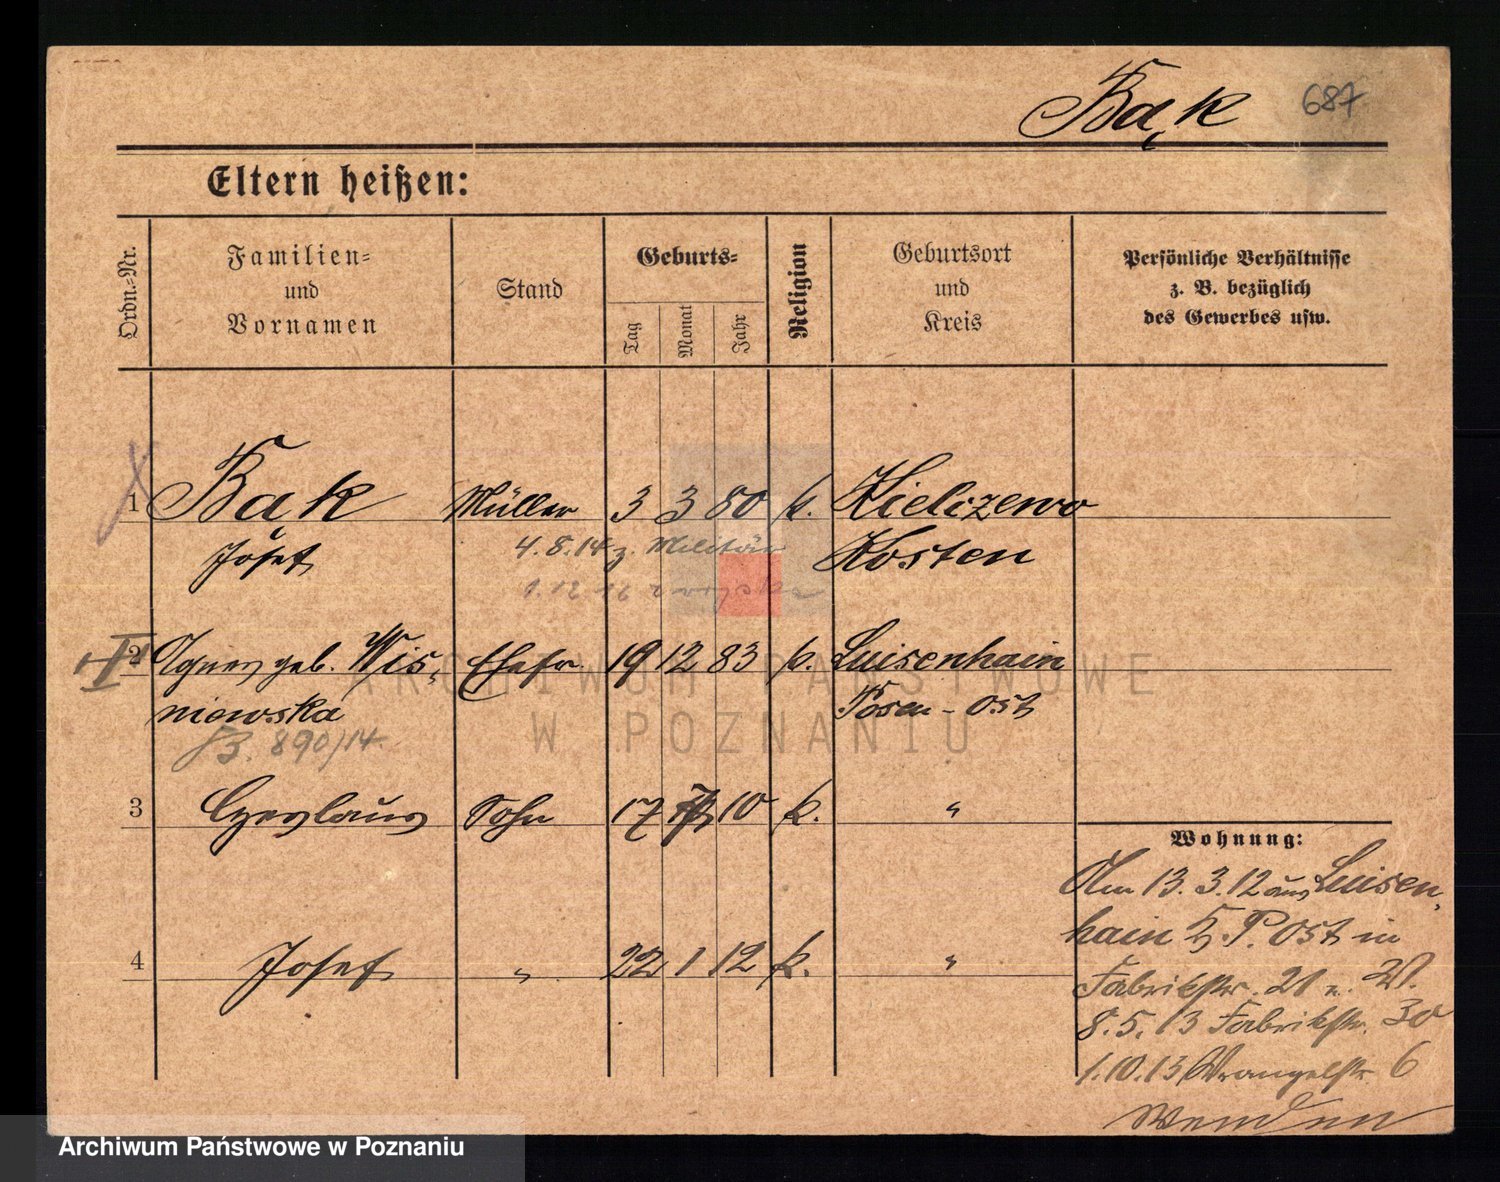 Bąk 687
Eltern heißen:
Ordn.-Nr.
Familien-
und
Vornamen
Stand
Geburts-
Tag
Monat
Jahr
Religion
Geburtsort
und
Kreis
Persönliche Verhältnisse
z. B. bezüglich
des Gewerbes usw.
1 Bąk Müller 3 3 80 k. Kielczewo
Josef Kosten
4.8.14 z. Militär
1.12.18
2 Agnes geb. Wis- Ehefr. 19 12 83 k. Luisenhain
niewska Posen-Ost
B. 890/14.
3 Czeslaus Sohn 17 7 10 k. "
4 Josef " 22 1 12 k. "
Wohnung:
Am 13.3.12 aus Luisen-
hain P. Ost in
Fabrikstr. 21
8.5.13 Fabrikstr. 30
1.10.13 Wrangelstr 6
ARCHIWUM PAŃSTWOWE
W POZNANIU
Archiwum Państwowe w Poznaniu